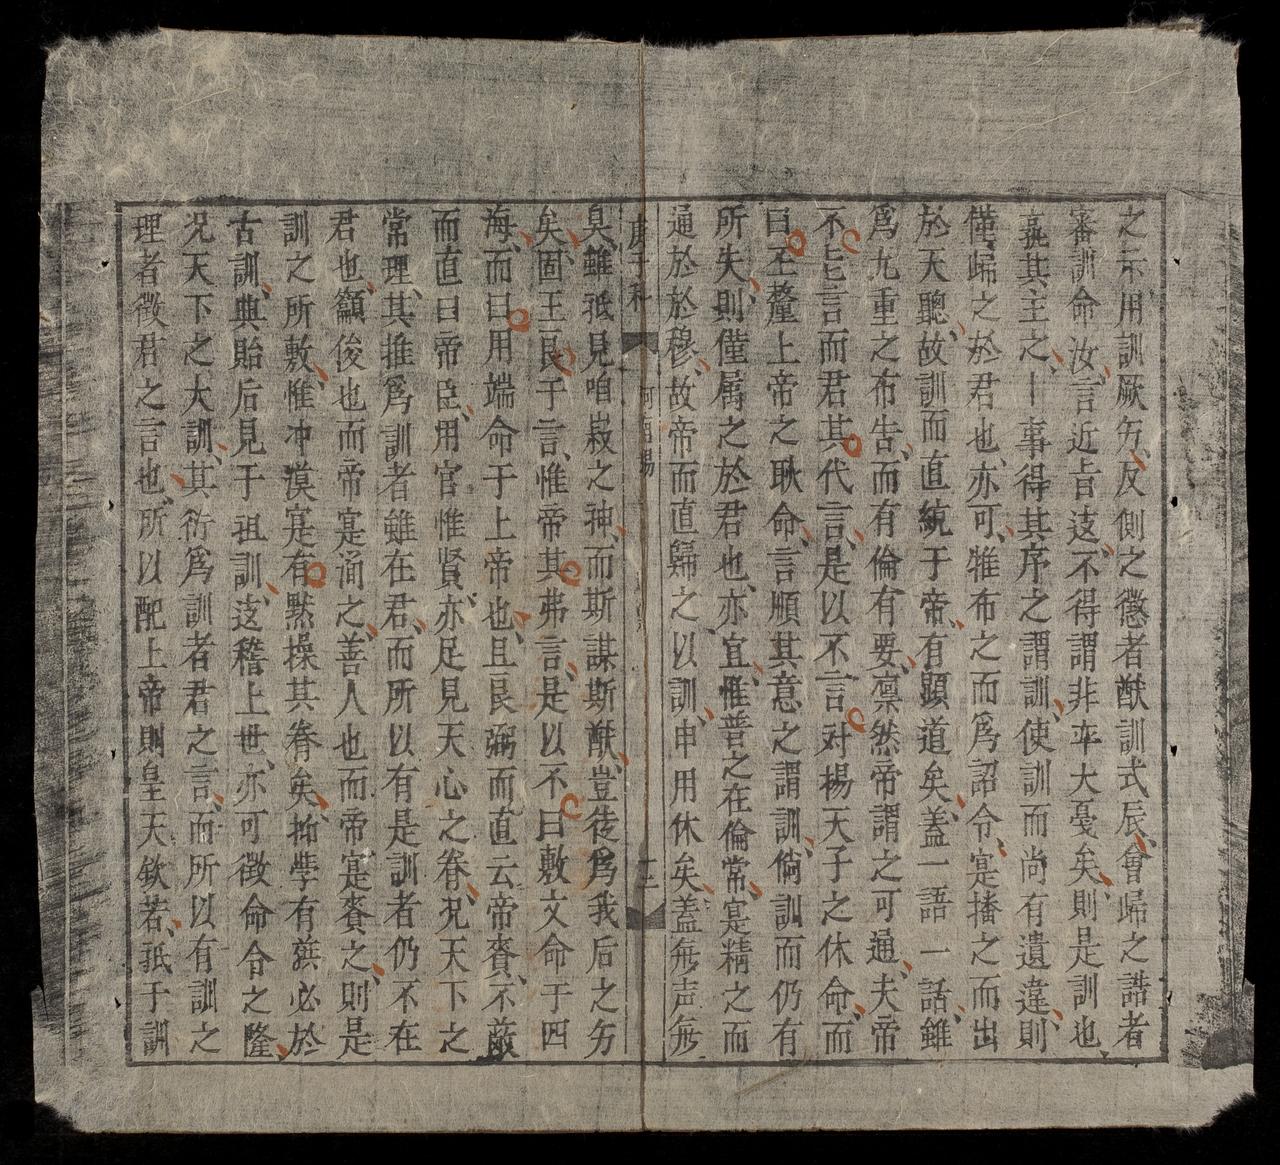 之示用訓厥方反側之懲者猷訓式辰會歸之誥者
審訓命汝言近旨遠不得謂非卒大憂矣則是訓也
其主之一事得其序之謂訓使訓而尚有遺違則
僅歸之於君也亦可惟布之而爲詔令寔播之而出
於天聽故訓而直統于帝有顯道矣蓋一語一話雖
爲九重之布告而有倫有要凛然帝謂之可通夫帝
不言言而君其代言是以不言对楊天子之休命而
曰丕釐上帝之耿命言順其意之謂訓倘訓而仍有
所失則僅属之於君也亦宜惟普之在倫常寔精之而
通於於穆故帝而直歸之以訓申用休矣蓋無声無
庚子科
三
臭雖祇見咱嶽之神而斯謀斯猷豈徒爲我后之方
矣固王畏于言惟帝其弗言是以不曰敷文命于四
海而曰用端命于上帝也且艮弼而直云帝賚不蔽
而直曰帝臣用官惟賢亦足見天心之眷况天下之
常理其推爲訓者雖在君而所以有是訓者仍不在
君也籲俊也而帝寔湎之善人也而帝寔賚之則是
訓之所敷惟冲漠寔有默操其眷矣抑學有謨必於
古訓典貽后見于祖訓遠稽上世亦可徵命令之隆
况天下之大訓其衍爲訓者君之言而所以有訓之
理者徵君之言也所以配上帝則皇天欽若祇于訓